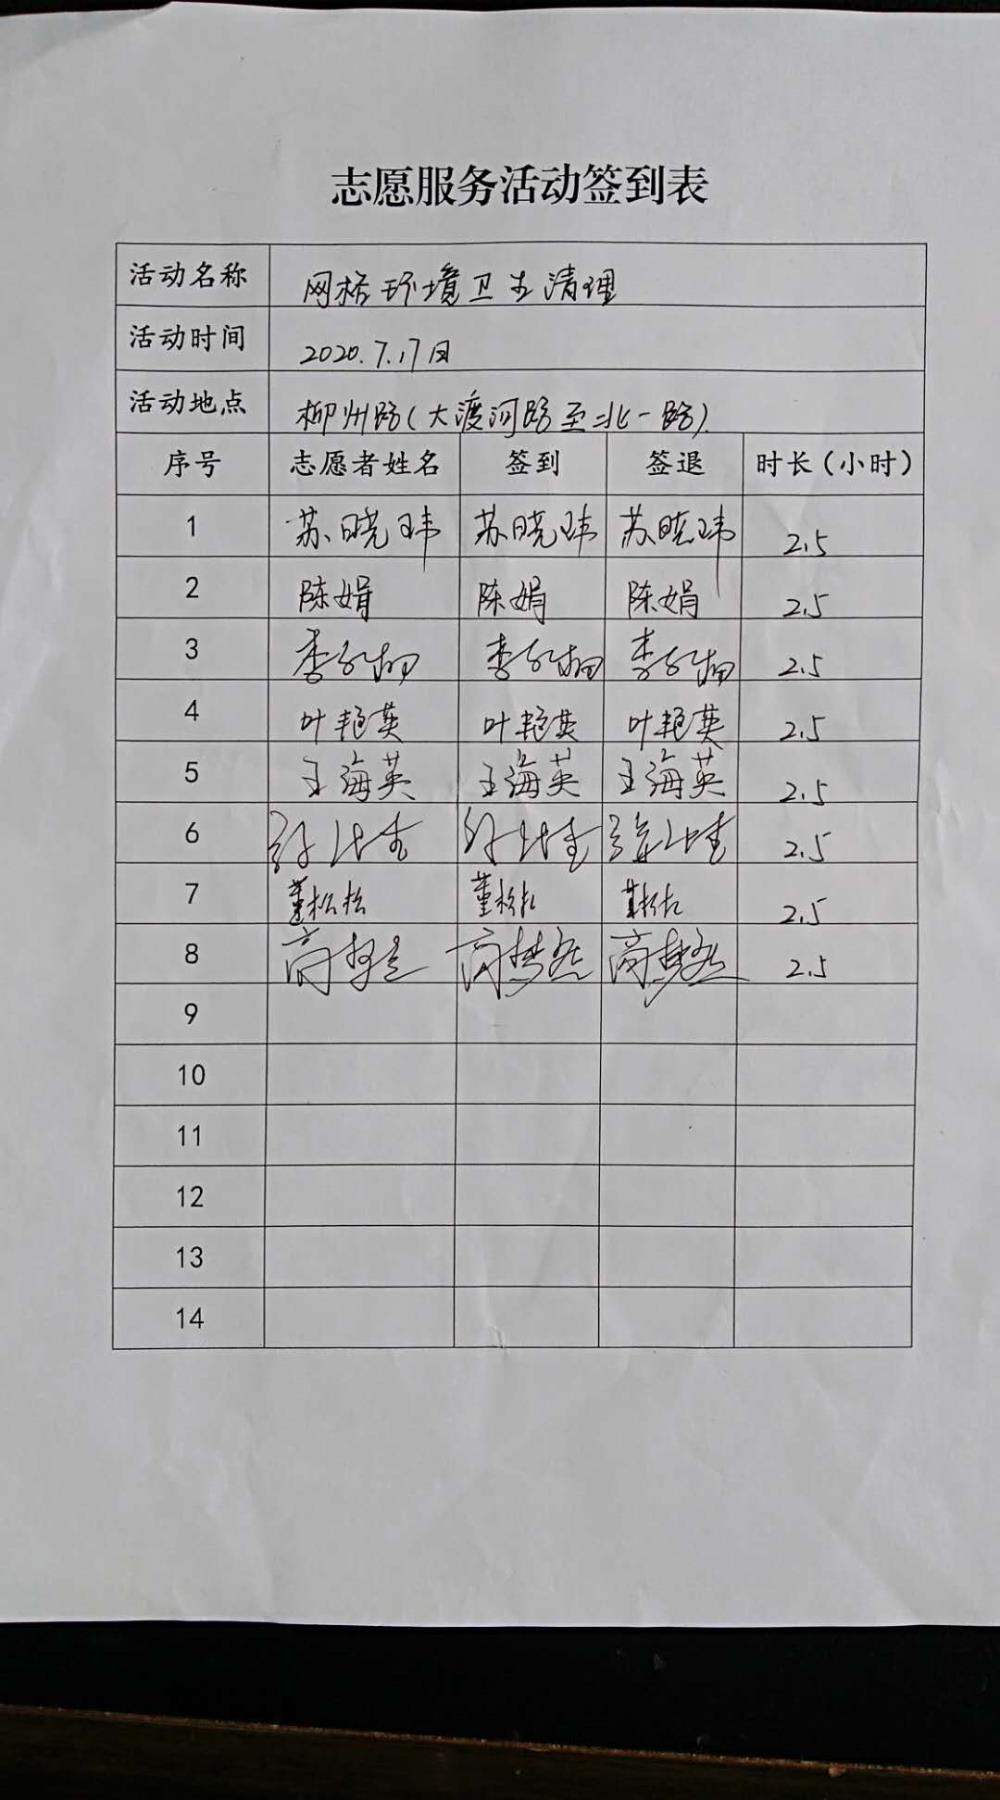 志愿服务活动签到表
活动名称 网格环境卫生清理
活动时间 2020.7.17日
活动地点 柳州路(大渡河路至北一路).
序号 志愿者姓名 签到 签退 时长(小时)
1 苏晓玮 苏晓玮 苏晓玮 2.5
2 陈娟 陈娟 陈娟 2.5
3 2.5
4 叶艳英 叶艳英 叶艳英 2.5
5 王海英 王海英 王海英 2.5
6 2.5
7 董松松 董松松 董松松 2.5
8 高梦 高梦 高梦 2.5
9
10
11
12
13
14